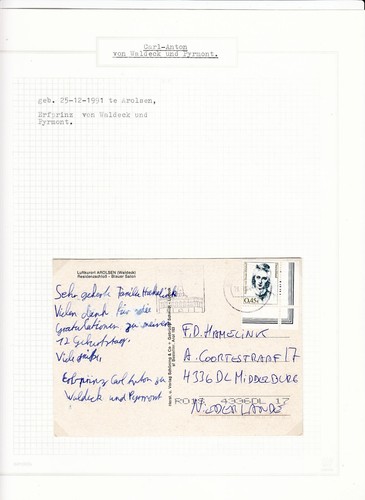 Carl-Anton
von Waldeck und Pyrmont.
geb. 25-12-1991 te Arolsen,
Erfprinz von Waldeck und
Pyrmont.
Luftkurort AROLSEN (Waldeck)
Residenzschloß - Blauer Salon
Sehr geehrte Familie
Vielen dank für die
Gratulationen zu meinem
12 Geburtstag.
Viele
Erbprinz Carl Anton zu
Waldeck und Pyrmont
0,45€
F.D. HAMELINK
A. COORTESTRAAT 17
4336 DL MIDDELBURG
4336DL 17
NIEDERLANDE